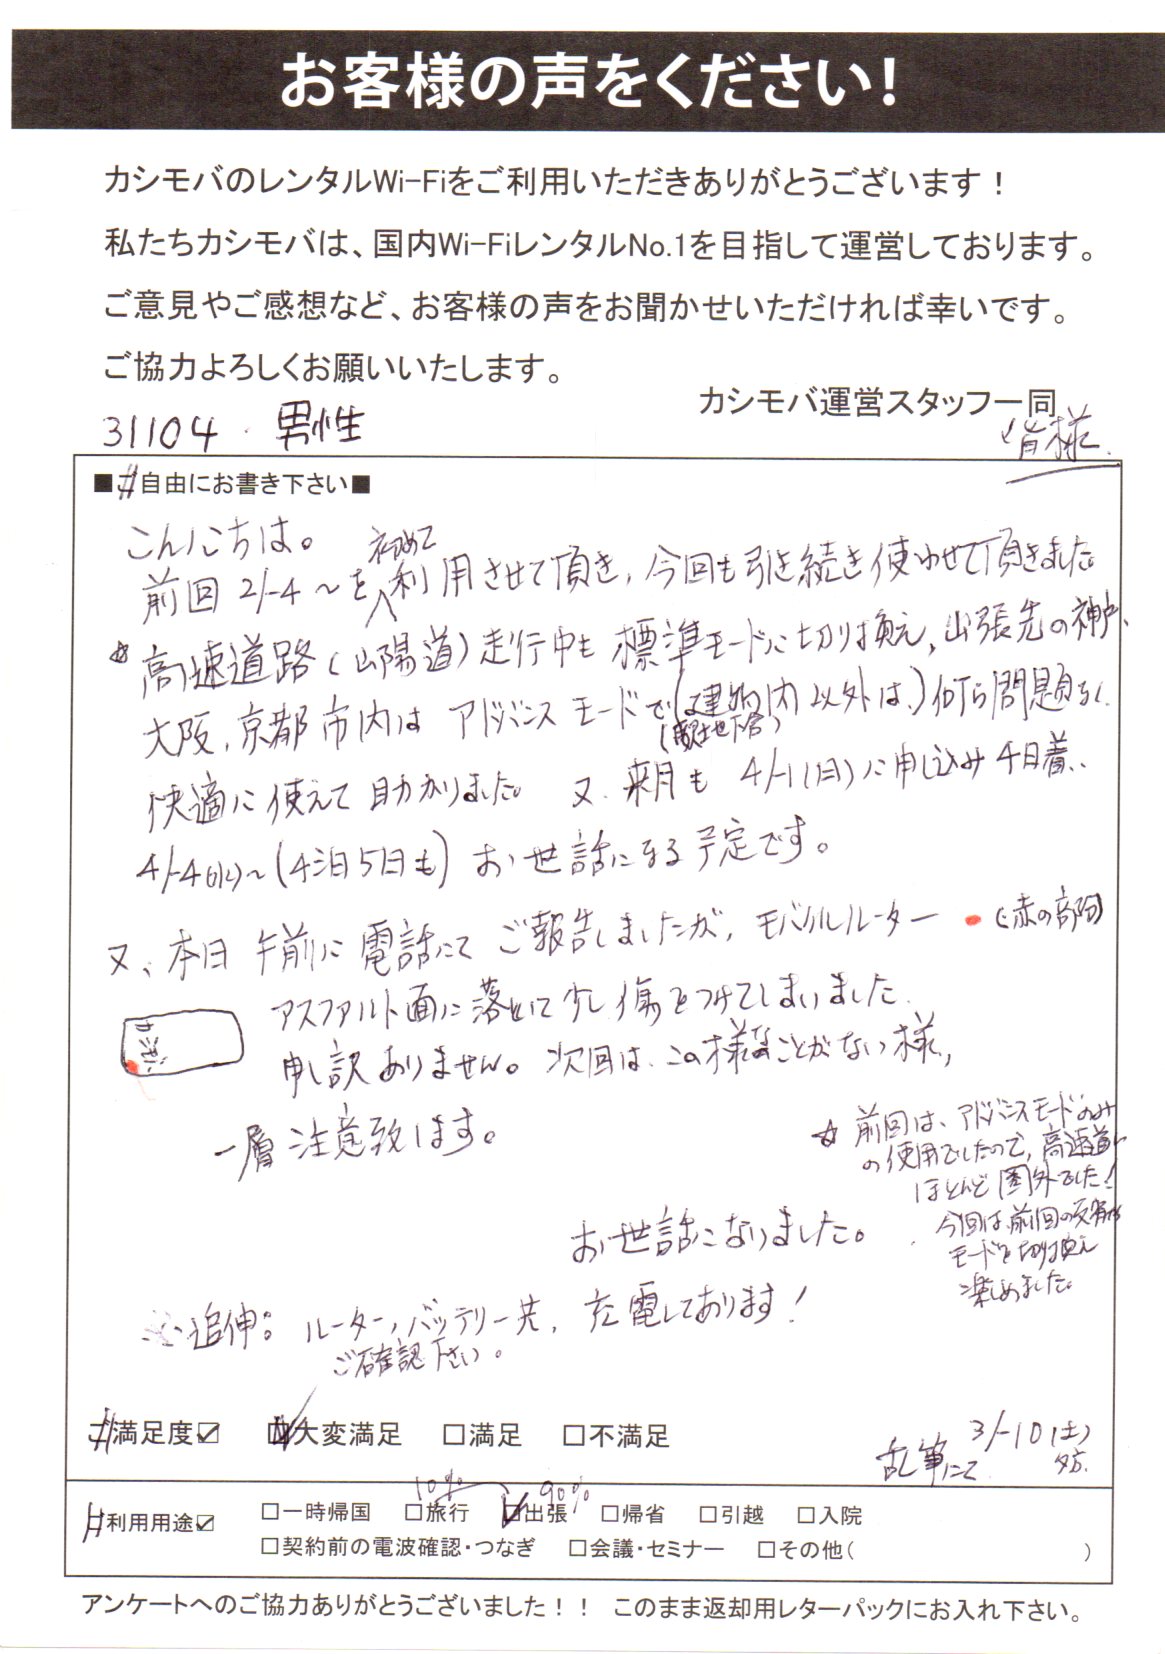 お客様の声をください！
カシモバのレンタルWi-Fiをご利用いただきありがとうございます！
私たちカシモバは、国内Wi-FiレンタルNo.1を目指して運営しております。
ご意見やご感想など、お客様の声をお聞かせいただければ幸いです。
ご協力よろしくお願いいたします。
カシモバ運営スタッフ一同
皆様
31104. 男性
■ご自由にお書き下さい■
こんにちは。
初めて
前回 2/-4～を利用させて頂き、今回も引き続き使わせて頂きました
☆高速道路(山陽道)走行中も標準モードに切り換え、出張先の神戸、
大阪、京都市内はアドバンスモードで(建物内以外は、)何ら問題なく
地下含)
快適に使えて助かりました。又、来月も 4/-1(日)に申し込み4日着、
4/-4(水)～(4泊5日も)お世話になる予定です。
又、本日午前に電話にてご報告しましたが、モバイルルーター (赤の部分)
アスファルト面に落として少し傷をつけてしまいました。
申し訳ありません。次回は、この様なことがない様、
一層注意致します。
☆前回は、アドバンスモードのみ
の使用でしたので、高速道は
ほとんど圏外でした！
今回は、前回の反省から
モードを切り換え
楽しめました。
お世話になりました。
※追伸：ルーター、バッテリー共、充電しております！
ご確認下さい。
満足度☑ ☑大変満足 □満足 □不満足
乱筆にて 3/-10(土)
夕方
10% 90%
利用用途☑ □一時帰国 □旅行 ☑出張 □帰省 □引越 □入院
□契約前の電波確認・つなぎ □会議・セミナー □その他( )
アンケートへのご協力ありがとうございました！！ このまま返却用レターパックにお入れ下さい。